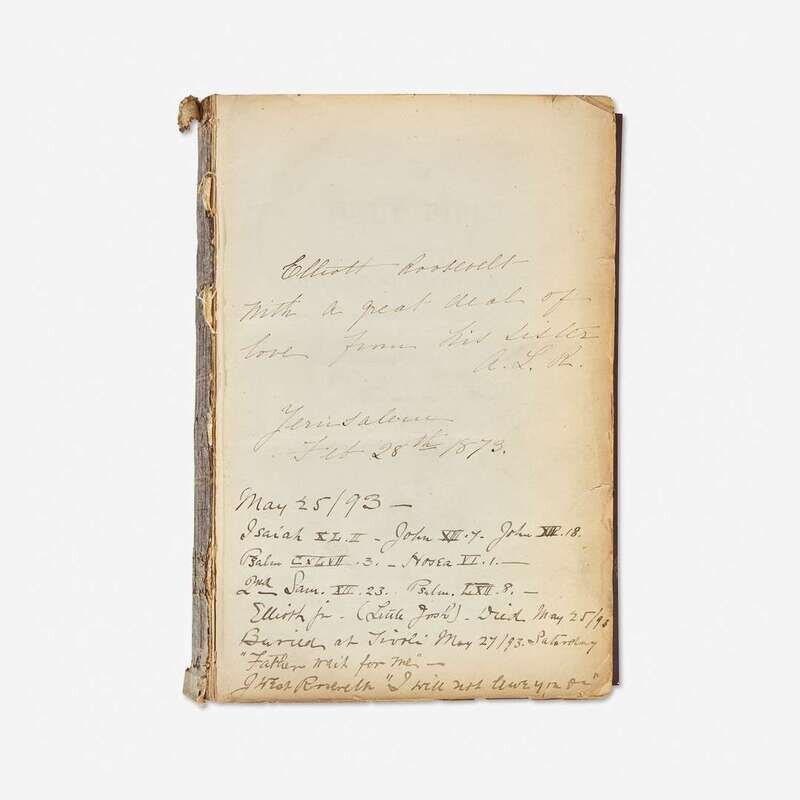 Elliott Roosevelt
With a great deal of
love from his sister
A. L. R.
Jerusalem
Feb 28th 1873.
May 25/93 —
Isaiah XL. II - John XIII. 7 - John XIV. 18.
Psalm CXLVII. 3. - Hosea VI. 1. —
2nd Sam. XII. 23. Psalm. LXII. 8. —
Elliott jr - (Little Josh) - Died May 25/93
Buried at Tivoli May 27/93. Saturday
"Father wait for me" —
J West Roosevelt "I will not leave you"